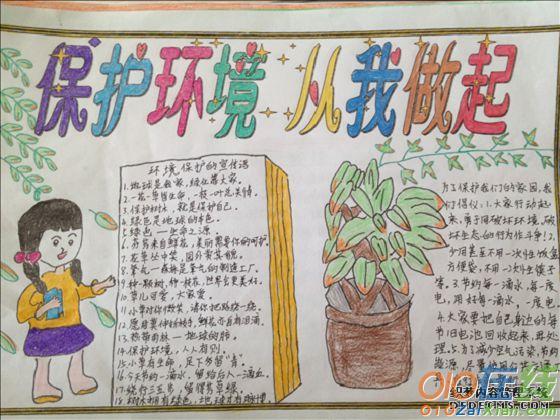 保护环境 从我做起
环境保护的宣传语
1.地球是我家,绿化靠大家。
2.一花一草皆生命,一枝一叶总关情。
3.保护树木,就是保护自己。
4.绿色是地球的本色。
5.绿色——生命之源
6.芬芳来自鲜花,美丽需要你的呵护。
7.花草丛中笑,园外赏其貌。
8.氧气——森林是氧气的制造工厂。
9.种一颗树,种一枝花,世界会更美好。
10.草儿可爱,大家爱。
11.小草对你微笑,请你把路绕一绕。
12.愿君莫伸折枝手,鲜花亦自有泪滴。
13.热带雨林——地球的肺。
14.保护环境,人人有别。
15.小草有生命,足下多留"青"。
16.今天节约一滴水,留给后人一滴血
17.绕行三五步,留得芳草绿。
18.树木拥有绿色,地球才有脉搏
为了保护我们的家园,我
们倡仪:1.大家行动起
来,勇于同破坏环境,破
坏生态的行为作斗争!2.
少用甚至不用一次性饭盒
方便袋,不用一次性筷子
等。3.节约每一滴水,每一度
电,用好每一滴水,一度电
4.大家要把自己身边的每一
节旧电池回收起来,再处
理。5.为了减少空气污染,节约
织梦内容管理系统
DEDECMS.COM
010在线
010zaixian.com